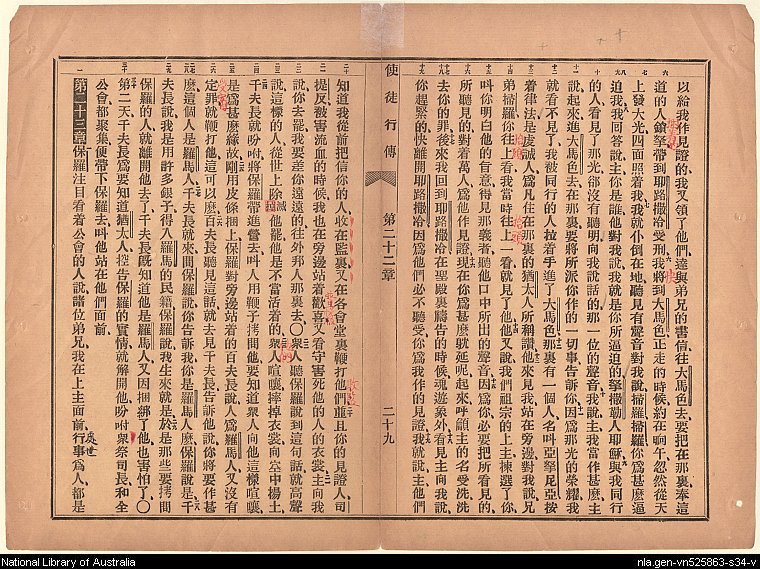 以給我作見證的我又領了他們達與弟兄的書信往大馬色去要把在那裏奉這
道的人鎖拏帶到耶路撒冷受刑我將到大馬色正走的時候約在晌午忽然從天
上發大光四面照着我我就仆倒在地聽見有聲音對我說掃羅掃羅你爲甚麼逼
迫我我回答說主你是誰他對我說我就是你所逼迫的拏撒勒人耶穌與我同行
的人看見了那光卻沒有聽明向我說話的那一位的聲音我說主我當作甚麼主
說起來進大馬色去在那裏要將所派你作的一切事告訴你因爲那光的榮耀我
就看不見了我被同行的人拉着手進了大馬色那裏有一個人名叫亞拏尼亞按
着律法是虔誠人爲凡住在那裏的猶太人所稱讚他來見我站在旁邊對我說兄
弟掃羅你往上看我當時往上一看就見了他他又說我們祖宗的上主揀選了你
叫你明白他的旨意得見那義者聽他口中所出的聲音因爲你必要把所看見的
所聽見的對着萬人爲他作見證現在你爲甚麼就延呢起來呼籲主的名受洗洗
去你的罪後來我回到耶路撒冷在聖殿裏禱告的時候魂遊象外看見主向我說
你趕緊的快離開耶路撒冷因爲他們必不聽受你爲我作的見證我就說主他們
使徒行傳
第二十二章
二十九
知道我從前把信你的人收在監裏又在各會堂裏鞭打他們並且你的見證人司
提反被害流血的時候我也在旁邊站着歡喜又看守害死他的人的衣裳主向我
說你去罷我要差你遠遠的往外邦人那裏去〇衆人聽保羅說到這句話就高聲
說這樣的人從世上除滅他罷他是不當活着的衆人喧嚷摔掉衣裳向空中揚土
千夫長就吩咐將保羅帶進營去叫人用鞭子拷問他要知道衆人向他這樣喧嚷
是爲甚麼緣故剛用皮條捆上保羅對旁邊站着的百夫長說人爲羅馬人又沒有
定罪就鞭打他這可以麼百夫長聽見這話就去見千夫長告訴他說你將要作甚
麼這個人是羅馬人千夫長就來問保羅說你告訴我你是羅馬人麼保羅說是千
夫長說我是用許多銀子得入羅馬的民籍保羅說我生來就是於是那些要拷問
保羅的人就離開他去了千夫長旣知道他是羅馬人又因捆綁了他也害怕了〇
第二天千夫長爲要知道猶太人控告保羅的實情就解開他吩咐衆祭司長和全
公會都聚集便帶下保羅去叫他站在他們面前
第二十三章保羅注目看着公會的人說諸位弟兄我在上主面前行事爲人都是
處世
National Library of Australia
nla.gen-vn525863-s34-v